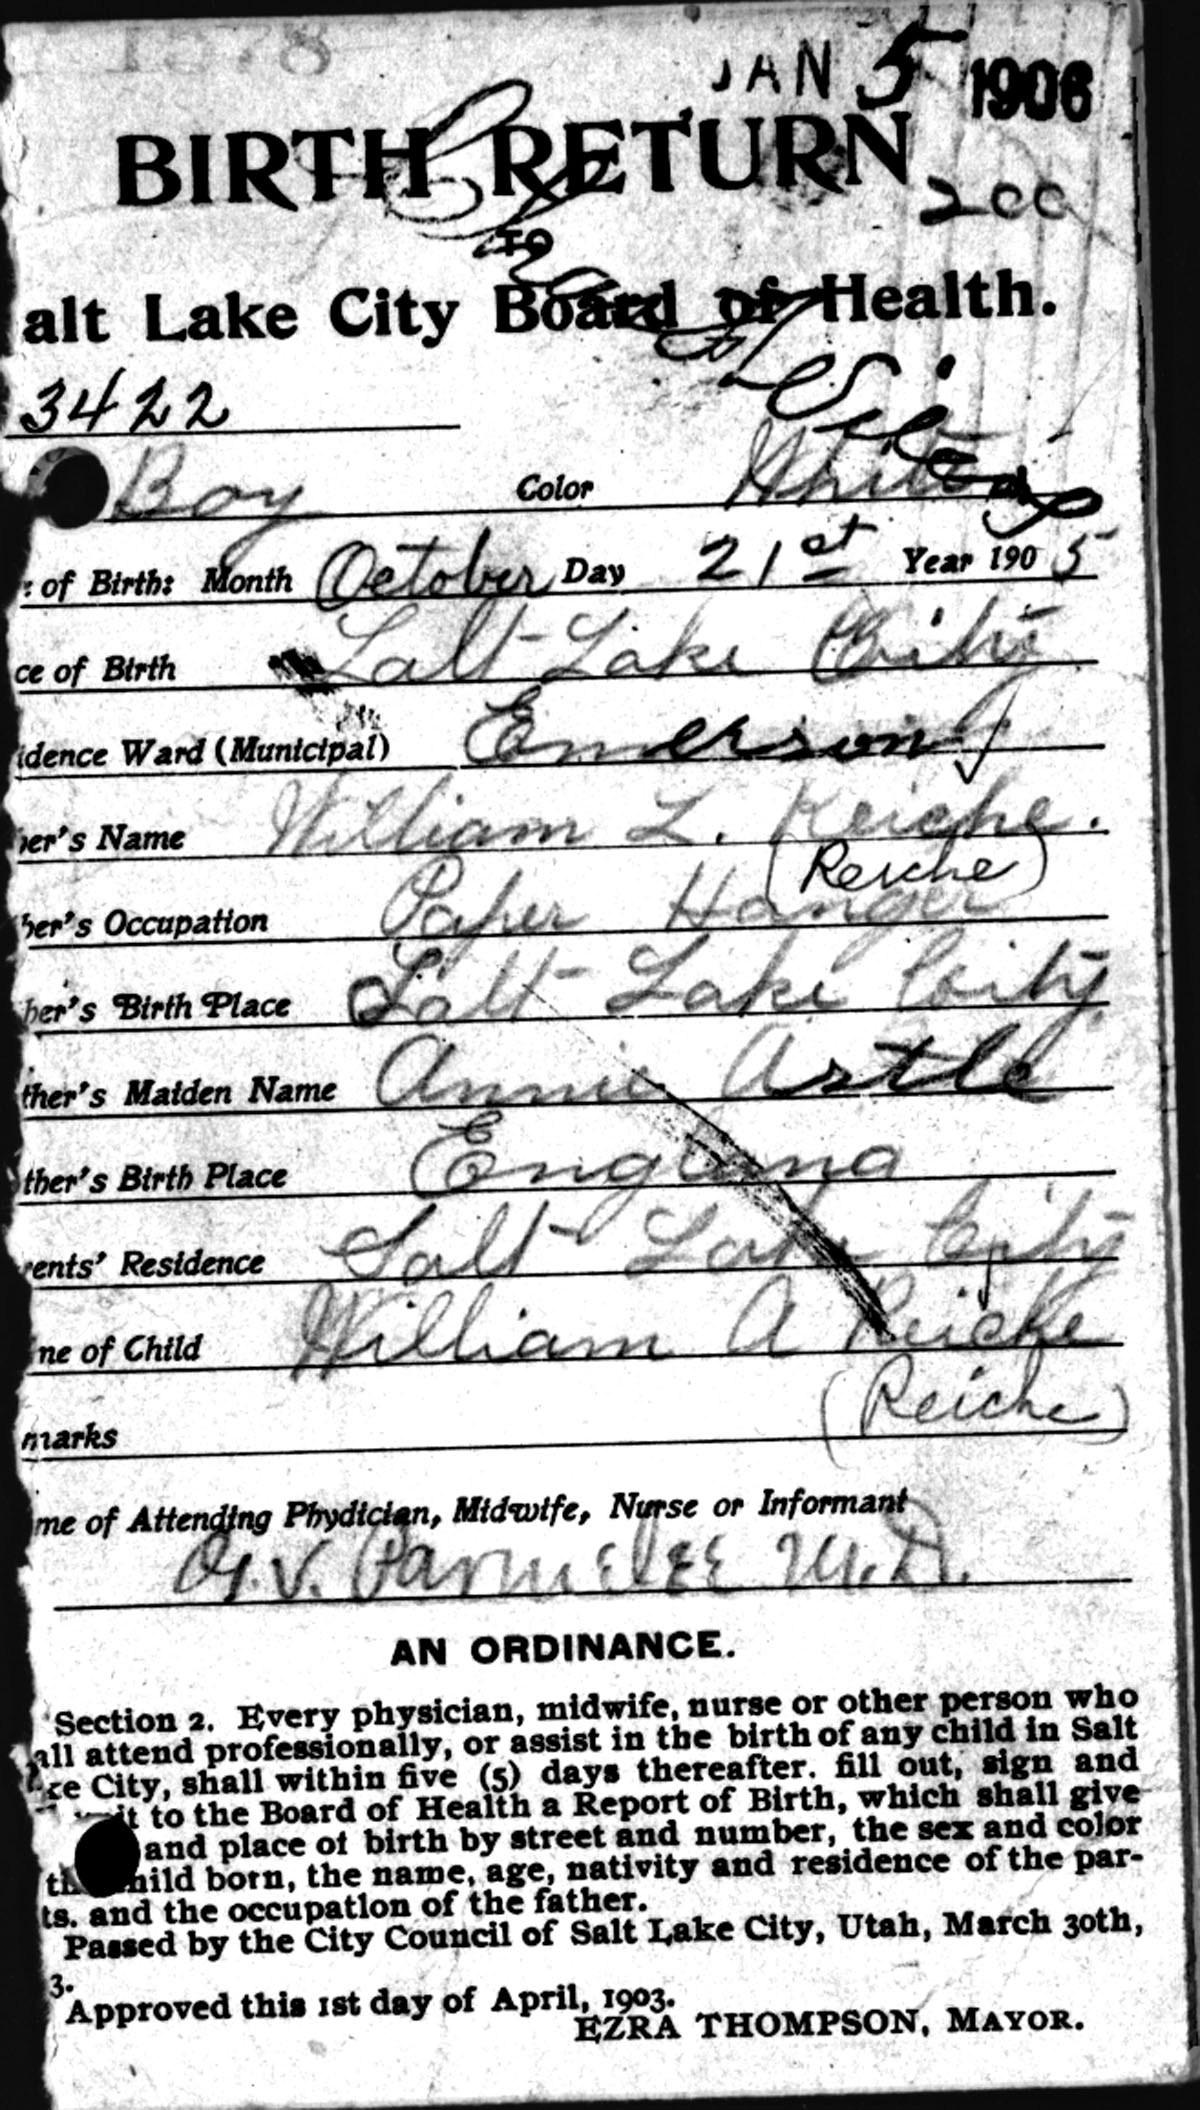 1378
JAN 5 1906
BIRTH RETURN
200
TO
alt Lake City Board of Health.
3422
Boy Color White
of Birth: Month October Day 21st Year 1905
ce of Birth Salt Lake City
idence Ward (Municipal) Emerson
er's Name William L. Reiche.
(Reiche)
her's Occupation Paper Hanger
her's Birth Place Salt Lake City
ther's Maiden Name Annie Astle
ther's Birth Place England
rents' Residence Salt Lake City
me of Child William A Reiche
(Reiche)
marks
me of Attending Phydician, Midwife, Nurse or Informant
G.V. Parmelee M.D.
AN ORDINANCE.
Section 2. Every physician, midwife, nurse or other person who
all attend professionally, or assist in the birth of any child in Salt
ke City, shall within five (5) days thereafter. fill out, sign and
it to the Board of Health a Report of Birth, which shall give
and place of birth by street and number, the sex and color
th hild born, the name, age, nativity and residence of the par-
ts. and the occupation of the father.
Passed by the City Council of Salt Lake City, Utah, March 30th,
3.
Approved this 1st day of April, 1903.
EZRA THOMPSON, MAYOR.